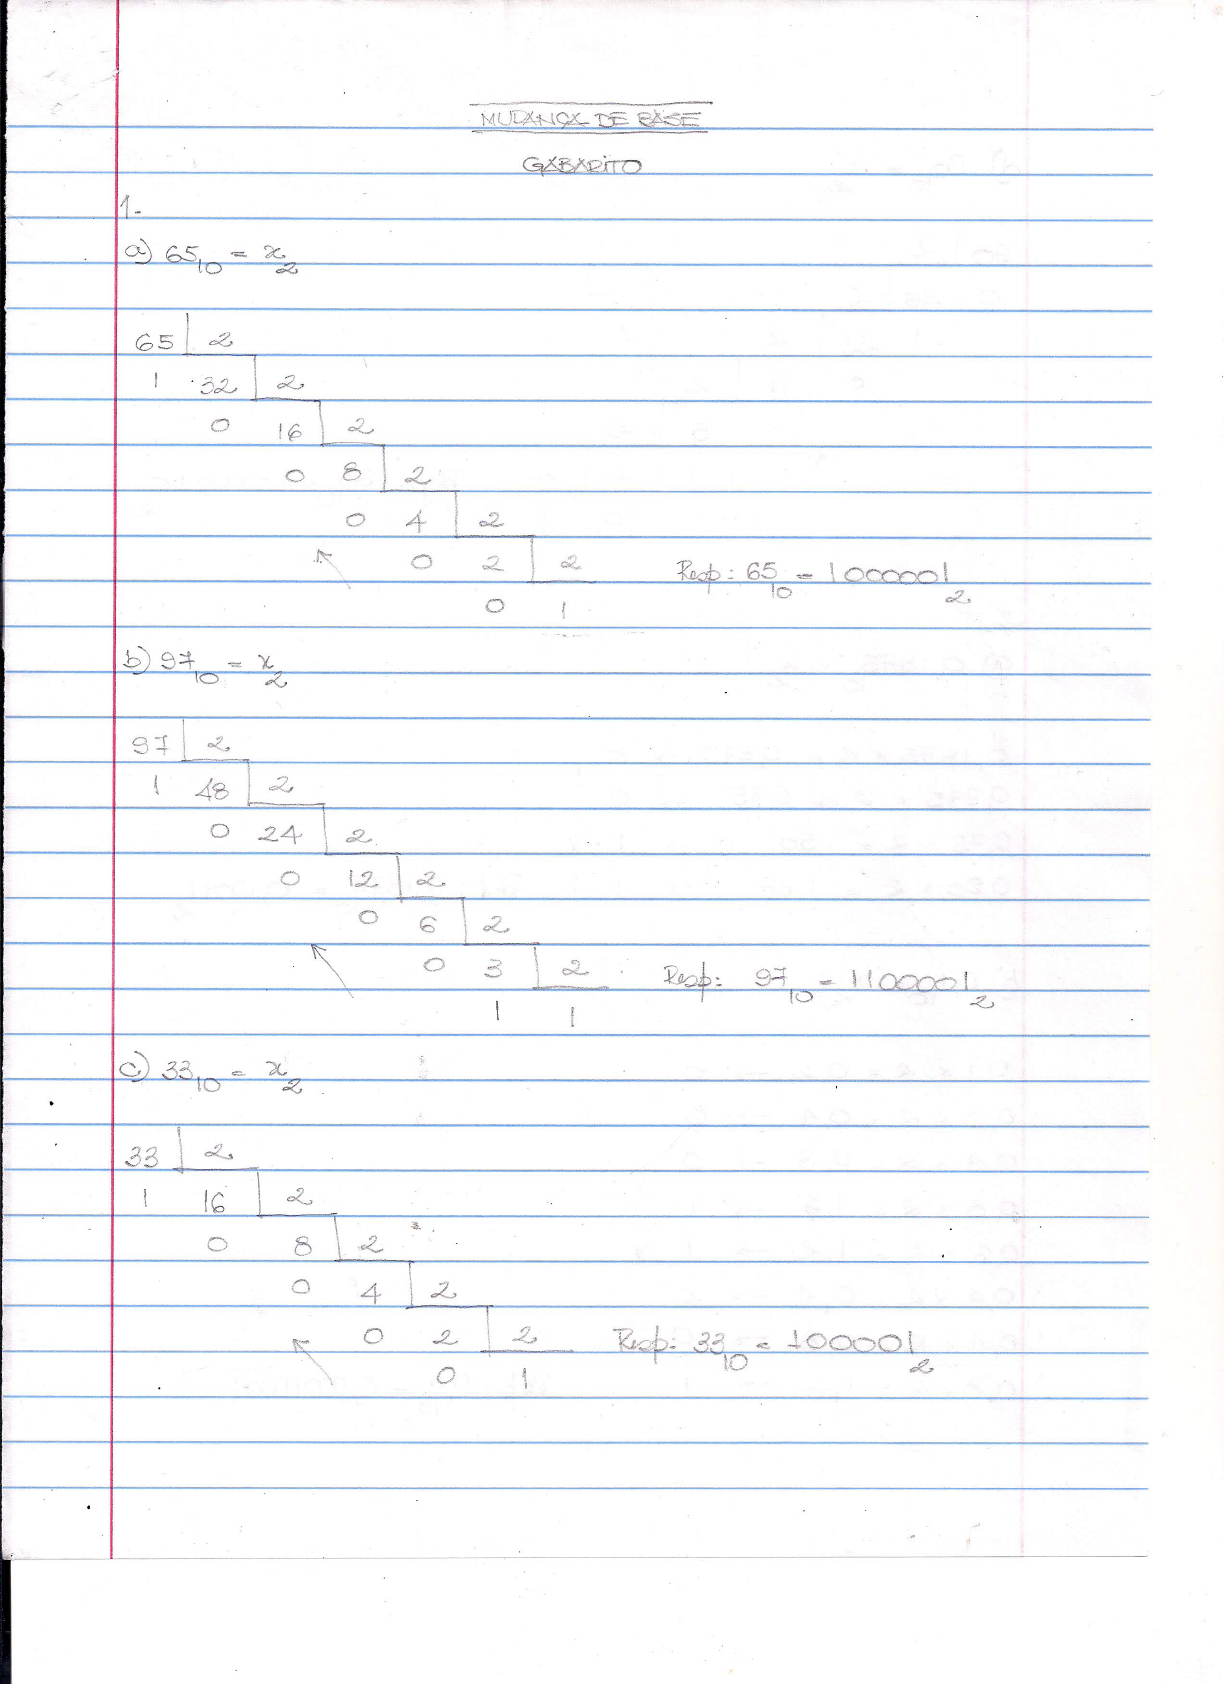 MUDANÇA DE BASE
GABARITO
1-
a) 65₁₀ = x₂
65 2
1 32 2
0 16 2
0 8 2
0 4 2
0 2 2
Resp: 65₁₀ = 1000001₂
0 1
b) 97₁₀ = x₂
97 2
1 48 2
0 24 2
0 12 2
0 6 2
0 3 2
Resp: 97₁₀ = 1100001₂
1 1
c) 33₁₀ = x₂
33 2
1 16 2
0 8 2
0 4 2
0 2 2
Resp: 33₁₀ = 100001₂
0 1